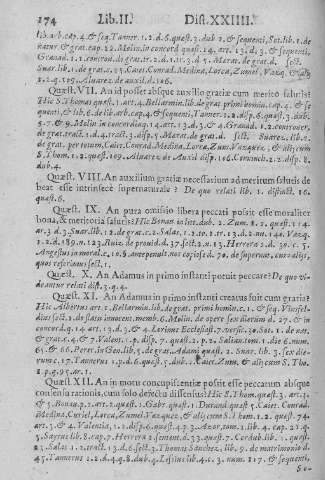 174 Lib.II. Dist.XXIIII.
lib.arb.cap.4.& seq.Tanner.1.2.d.6.quæst.3.dub.2.& sequenti, Sot.lib.1.de
natur.& grat.cap.22.Molin.in concord quæst.14.art.13.d.3.& sequenti,
Granad.1.2.controuer.8.de grat.tr.2.d.1.tr.3.d.5. Marat.de grat.d. sect.
Suar.lib.1.de grat.c.25.Caiet.Conrad.Medina,Lorca,Zumel,Vazq.&
1.2.q.109. Aluarez de auxil.d.106.
Quæst. VII. An id posset absque auxilio gratiæ cum merito salutis?
Hic S.Thomas quæst.1.art.4.Bellarmin.lib.de grat.primi homin.cap.4.& se
quenti,& lib.6.de lib.arb.cap.4.& sequenti,Tanner.1.2.disp.6.quæst.3.dub.
5.7.& 9.Molin in concordia q.14.art.13.d.3.& 4.Granad.1.2.controuer.
de grat.tract.2.d.4.tract.3.disp.5.Marat.de grat.d. sect. Suarez.lib.1.
de grat.per totum,Caiet.Conrad.Medina.Lorca,Zum.Vazquez, & alij cum
S.Thom.1.2.quæst.109. Aluarez de Auxil disp.106.Coninch.2.2.disp.8.
dub.4.
Quæst. VIII. An auxilium gratiæ necessarium ad meritum salutis de
beat esse intrinsecè supernaturale? De quo relati lib.1.distinct.16.
quæst.6.
Quæst. IX. An pura omissio libera peccati possit esse moraliter
bona, & meritoria salutis? Hic Sotan in lit.dub.2.Zum.1.2.quæst.114.
ar.3.d.3.Suar.lib.12.de grac.c.2.Salas.1.2.to.1.tr.13.d.2.nu.146.Vazq.
1.2.d.189.n.123.Ruiz.de prouid.d.37.sect.2.n.13.Herrera 2.d.30.c.5.
Angestus in moral.c.16.& antepenult.nos copiosè d.70.de supernat.cùm alijs,
quos referimus sect.1.
Quæst. X. An Adamus in primo instanti potuit peccare? De quo vi-
deantur relati disp.3.q.4.
Quæst. XI. An Adamus in primo instanti creatus fuit cum gratia?
Hic Albertus art.1.Bellarmin.lib.de grat.primi homin.c.1.& seq.
sect.1.de statu innocent.memb.6.Molin.de opere sex dierum d.27.& in
concord.q.14.art.13.d.3.& 4.
& grat.c.4.& 7.Valent.1.p.disp.7.quæst.2.p.2.Salian.tom.1.die 6.num.
65.& 66.Perer.in Gen.lib.5.de grat.Adami quæst.2.Suar.lib.3.sex die-
rum c.17.Tannerus 1.p.d.6.quæst.5.dub. Caiet.Zum.& alij cum S.Tho.
1.p.q.95.ar.1.
Quæst. XII. An in motu concupiscentiæ possit esse peccatum absque
consensu rationis, cum solo defectu dissensus? Hic S.Thom.quæst.3.art.2.
& 5.Bonau.p.2.art.2.quæst.2.Gabr.quæst.1.Durand.quæst.5.Caiet.Conrad.
Medina,Curiel,Lorca,Zumel,Vazquez,& alij cum S.Thom.1.2.quæst.74.
art.3.& 4.Valentia,1.2.disp.6.quæst.4.p.3.Azor.tom.1.lib.4.cap.21.q.
5.Sayrus lib.8.cap.7.Herrera 2.sentent.d.33.quæst.7.Cordub.lib. quæst.
23.Salas 1.2.tract.13.d.6.sect.3.Thomas Sanchez lib.9.de matrimonio d.
45.Tannerus 1.2.d.4.q.8.dub.4.Lessius lib.4.c.3.num.117.& sequenti,